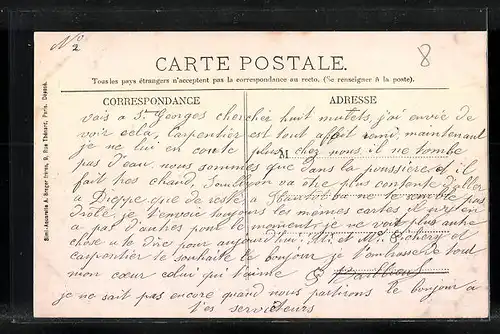 No
2
8
CARTE POSTALE.
Tous les pays étrangers n'acceptent pas la correspondance au recto. (Se renseigner à la poste).
CORRESPONDANCE
ADRESSE
M
Simi-Aquarelle A. Breger frères, 9, Rue Thénard, Paris. Déposé.
vais a St Georges chercher huit mulets, j'ai envie de
voir cela, Carpentier est tout a fait remi, maintenant
je ne lui en conte plus, chez nous il ne tombe
pas d'eau, nous sommes que dans la poussière et il
fait pas chaud, va etre plus contente d'aller
a Dieppe que de reste a ne te semble pas
drole, je t'envoie toujours les memes cartes il n'y en
a pas d'autres pour le moment je ne vois plus autre
chose a te dire pour aujourd'hui, M. et Me
Carpentier te souhaite le bonjour je t'embrasse de tout
mon coeur celui qui t'aime G
je ne sait pas encore quand nous partirons le bonjour a
tes serviteurs